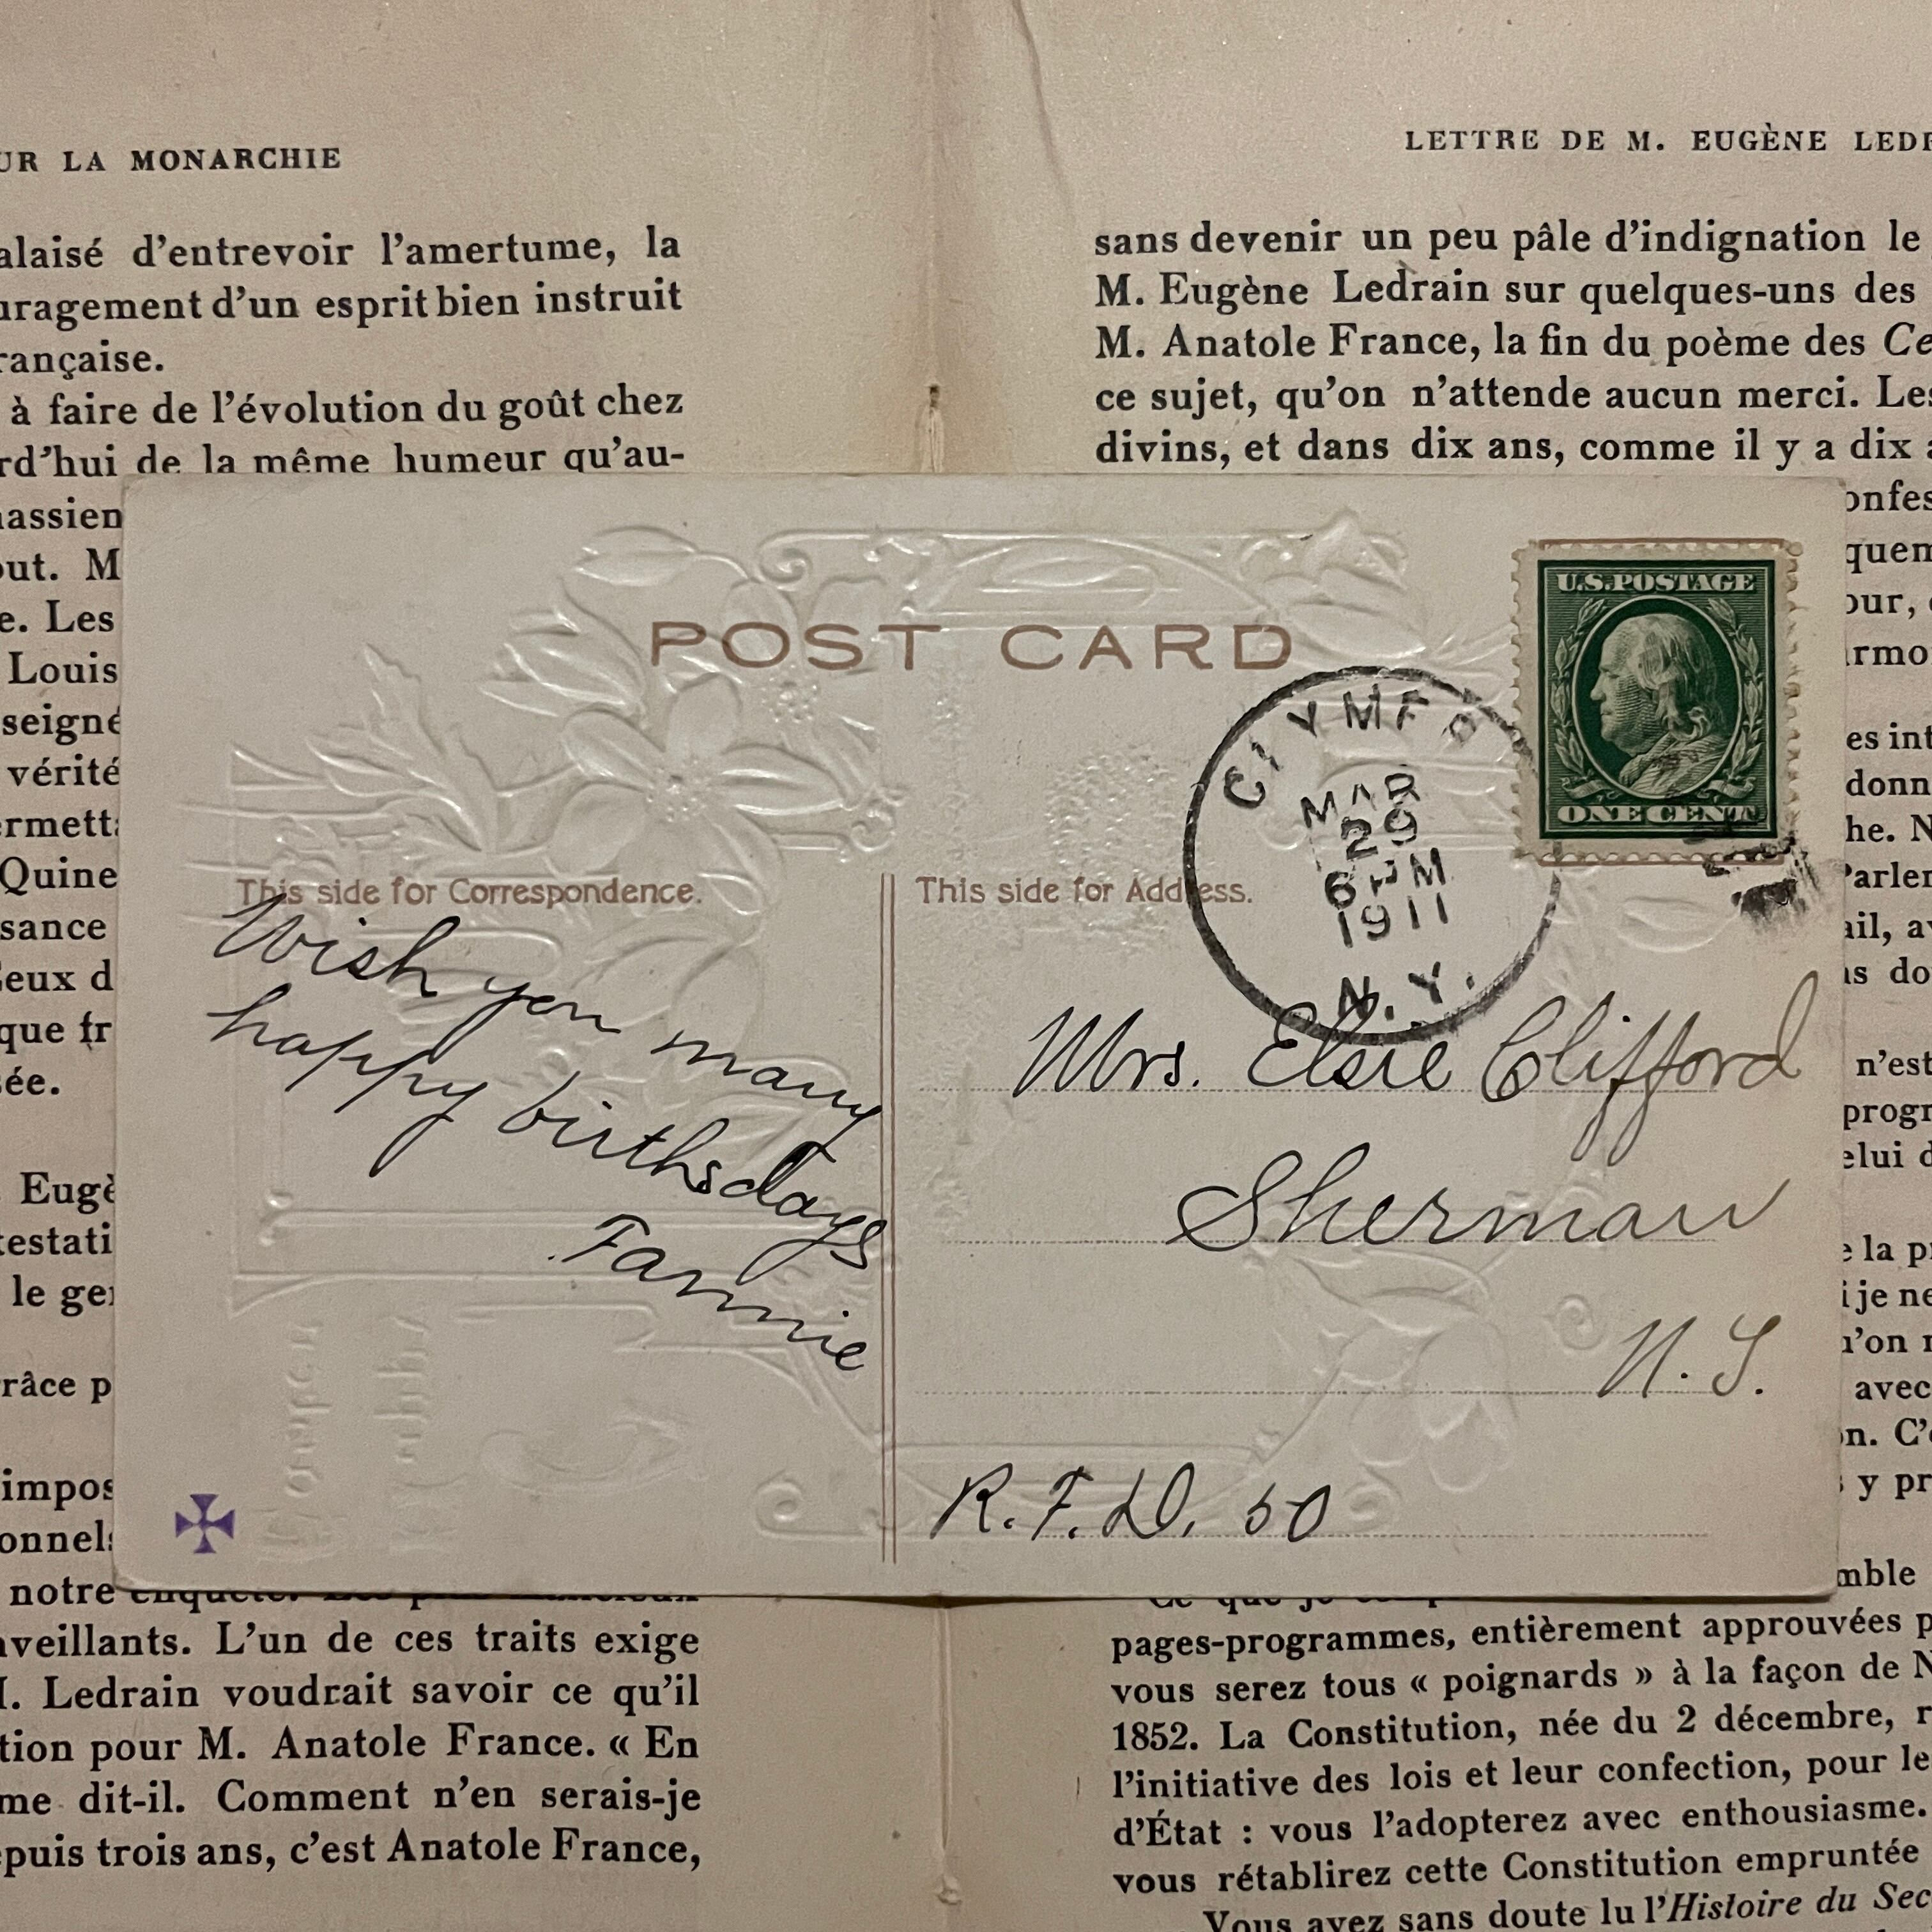 UR LA MONARCHIE
alaisé d'entrevoir l'amertume, la
uragement d'un esprit bien instruit
rançaise.
à faire de l'évolution du goût chez
rd'hui de la même humeur qu'au-
assien
out. M
e. Les
Louis
seigné
vérité
ermett
Quine
sance
Ceux d
que fr
sée.
Eugè
testati
le ge
râce p
impos
onnels
notre enquête.
veillants. L'un de ces traits exige
M. Ledrain voudrait savoir ce qu'il
tion pour M. Anatole France. « En
me dit-il. Comment n'en serais-je
epuis trois ans, c'est Anatole France,
POST CARD
This side for Correspondence.
Wish you many
happy birthsdays
Fannie
This side for Address.
MAR
29
6 PM
1911
N.Y.
U.S. POSTAGE
ONE CENT
Mrs. Elsie Clifford
Sherman
N. Y.
R. F. D. 50
LETTRE DE M. EUGÈNE LEDR
sans devenir un peu pâle d'indignation le
M. Eugène Ledrain sur quelques-uns des
M. Anatole France, la fin du poème des Ce
ce sujet, qu'on n'attende aucun merci. Les
divins, et dans dix ans, comme il y a dix a
onfes
quem
our,
armo
es int
donn
he. N
Parler
ail, av
as do
n'est
progr
elui d
e la p
i je ne
u'on n
avec
on. C'
s y pr
mble
Ce que je
pages-programmes, entièrement approuvées p
vous serez tous « poignards » à la façon de N
1852. La Constitution, née du 2 décembre, r
l'initiative des lois et leur confection, pour le
d'État : vous l'adopterez avec enthousiasme.
vous rétablirez cette Constitution empruntée
Vous avez sans doute lu l'Histoire du Sec